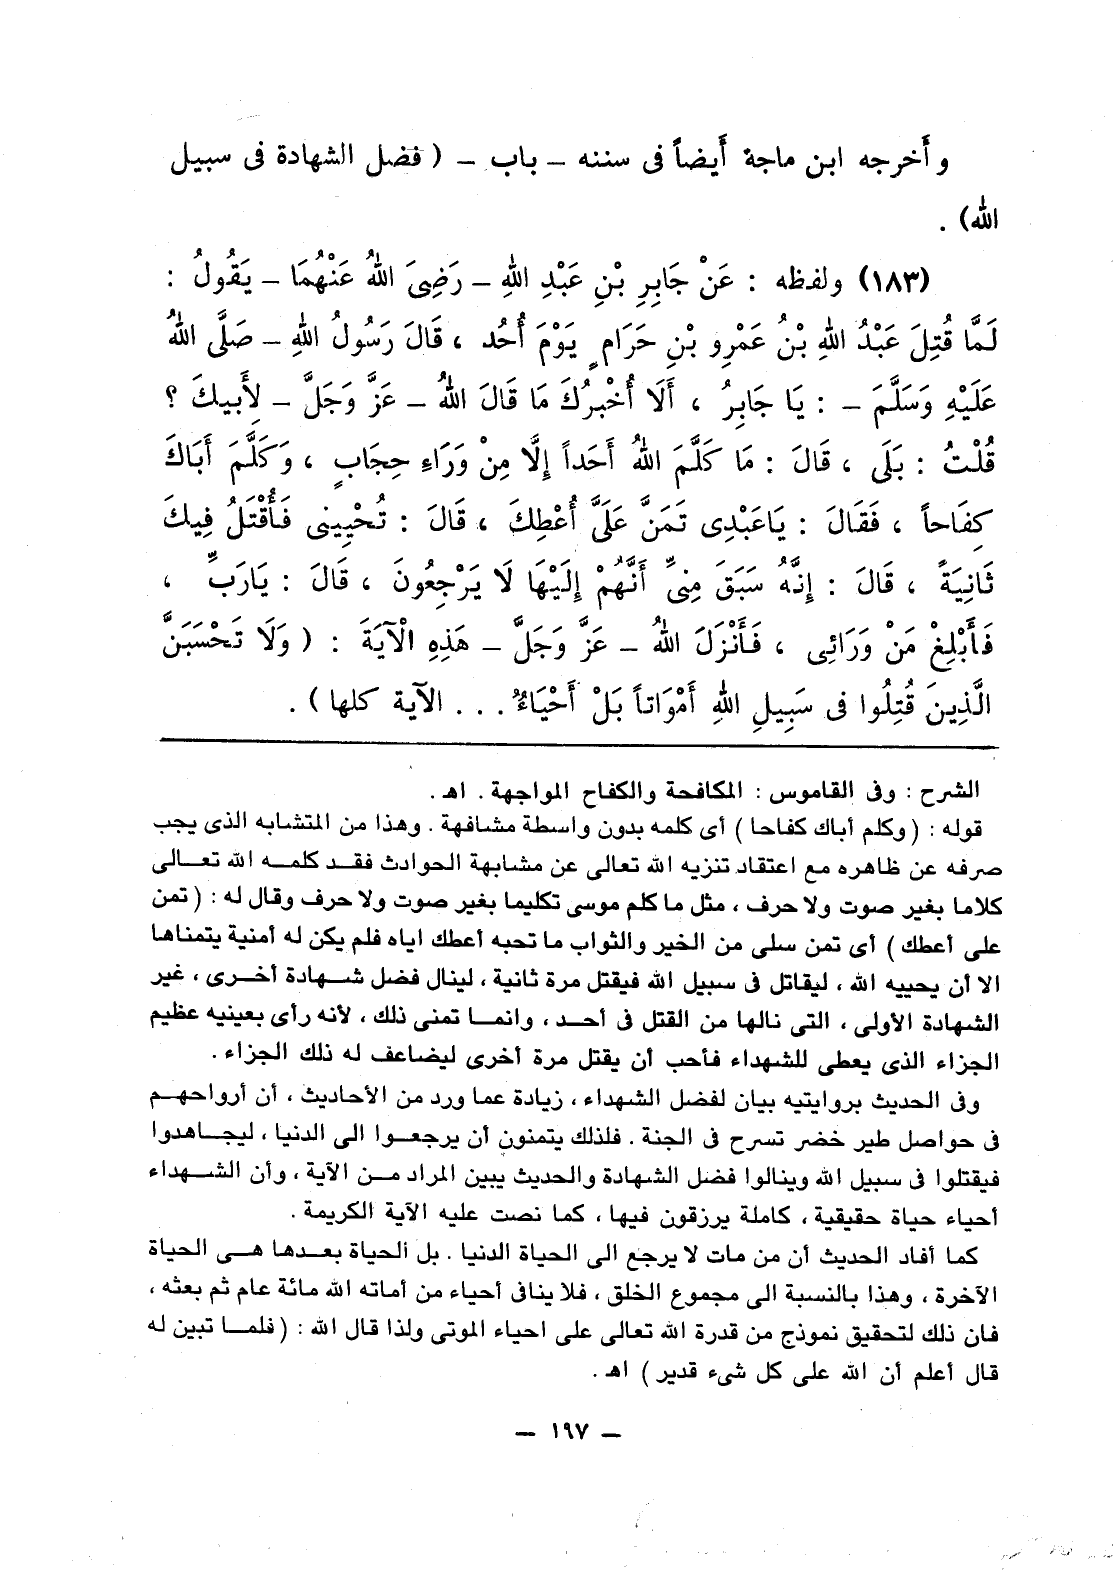 وأَخرجه ابن ماجة أَيضاً فى سننه – باب – ( فضل الشهادة فى سبيل
الله) .
(١٨٣) ولفظه : عَنْ جَابِرِ بْنِ عَبْدِ اللهِ – رَضِىَ اللهُ عَنْهُمَا – يَقُولُ :
لَمَّا قُتِلَ عَبْدُ اللهِ بْنُ عَمْرِو بْنِ حَرَامٍ يَوْمَ أُحُد ، قَالَ رَسُولُ اللهِ – صَلَّى اللهُ
عَلَيْهِ وَسَلَّمَ – : يَا جَابِرُ ، أَلَا أُخْبِرُكَ مَا قَالَ اللهُ – عَزَّ وَجَلَّ – لِأَبِيكَ ؟
قُلْتُ : بَلَى ، قَالَ : مَا كَلَّمَ اللهُ أَحَداً إِلَّا مِنْ وَرَاءِ حِجَابٍ ، وَكَلَّمَ أَبَاكَ
كِفَاحاً ، فَقَالَ : يَاعَبْدِى تَمَنَّ عَلَىَّ أُعْطِكَ ، قَالَ : تُحْيِينِى فَأُقْتَلُ فِيكَ
ثَانِيَةً ، قَالَ : إِنَّهُ سَبَقَ مِنِىِّ أَنَّهُمْ إِلَيْهَا لَا يَرْجِعُونَ ، قَالَ : يَارَبِّ ،
فَأَبْلِغْ مَنْ وَرَائِى ، فَأَنْزَلَ اللهُ – عَزَّ وَجَلَّ – هَذِهِ الْآيَةَ : ( وَلَا تَحْسَبَنَّ
الَّذِينَ قُتِلُوا فى سَبِيلِ اللهِ أَمْوَاتاً بَلْ أَحْيَاءٌ . . . الآية كلها ) .
الشرح : وفى القاموس : المكافحة والكفاح المواجهة . اهـ .
قوله : ( وكلم أباك كفاحا ) أى كلمه بدون واسطة مشافهة . وهذا من المتشابه الذى يجب
صرفه عن ظاهره مع اعتقاد تنزيه الله تعالى عن مشابهة الحوادث فقد كلمه الله تعالى
كلاما بغير صوت ولا حرف ، مثل ما كلم موسى تكليما بغير صوت ولا حرف وقال له : ( تمن
على أعطك ) أى تمن سلى من الخير والثواب ما تحبه أعطك اياه فلم يكن له أمنية يتمناها
الا أن يحييه الله ، ليقاتل فى سبيل الله فيقتل مرة ثانية ، لينال فضل شهادة أخرى ، غير
الشهادة الأولى ، التى نالها من القتل فى أحد ، وانما تمنى ذلك ، لأنه رأى بعينيه عظيم
الجزاء الذى يعطى للشهداء فأحب أن يقتل مرة أخرى ليضاعف له ذلك الجزاء .
وفى الحديث بروايتيه بيان لفضل الشهداء ، زيادة عما ورد من الأحاديث ، أن أرواحهم
فى حواصل طير خضر تسرح فى الجنة . فلذلك يتمنون أن يرجعوا الى الدنيا ، ليجاهدوا
فيقتلوا فى سبيل الله وينالوا فضل الشهادة والحديث يبين المراد من الآية ، وأن الشهداء
أحياء حياة حقيقية ، كاملة يرزقون فيها ، كما نصت عليه الآية الكريمة .
كما أفاد الحديث أن من مات لا يرجع الى الحياة الدنيا . بل الحياة بعدها هى الحياة
الآخرة ، وهذا بالنسبة الى مجموع الخلق ، فلا ينافى أحياء من أماته الله مائة عام ثم بعثه ،
فان ذلك لتحقيق نموذج من قدرة الله تعالى على احياء الموتى ولذا قال الله : ( فلما تبين له
قال أعلم أن الله على كل شىء قدير ) اهـ .
– ١٩٧ –